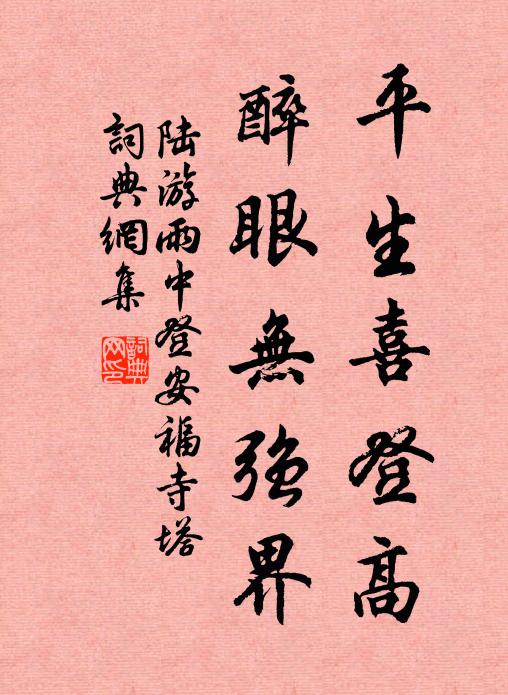 平生喜登高
醉眼無強界
陸游雨中登安福寺塔
詞典網集
詞典網印